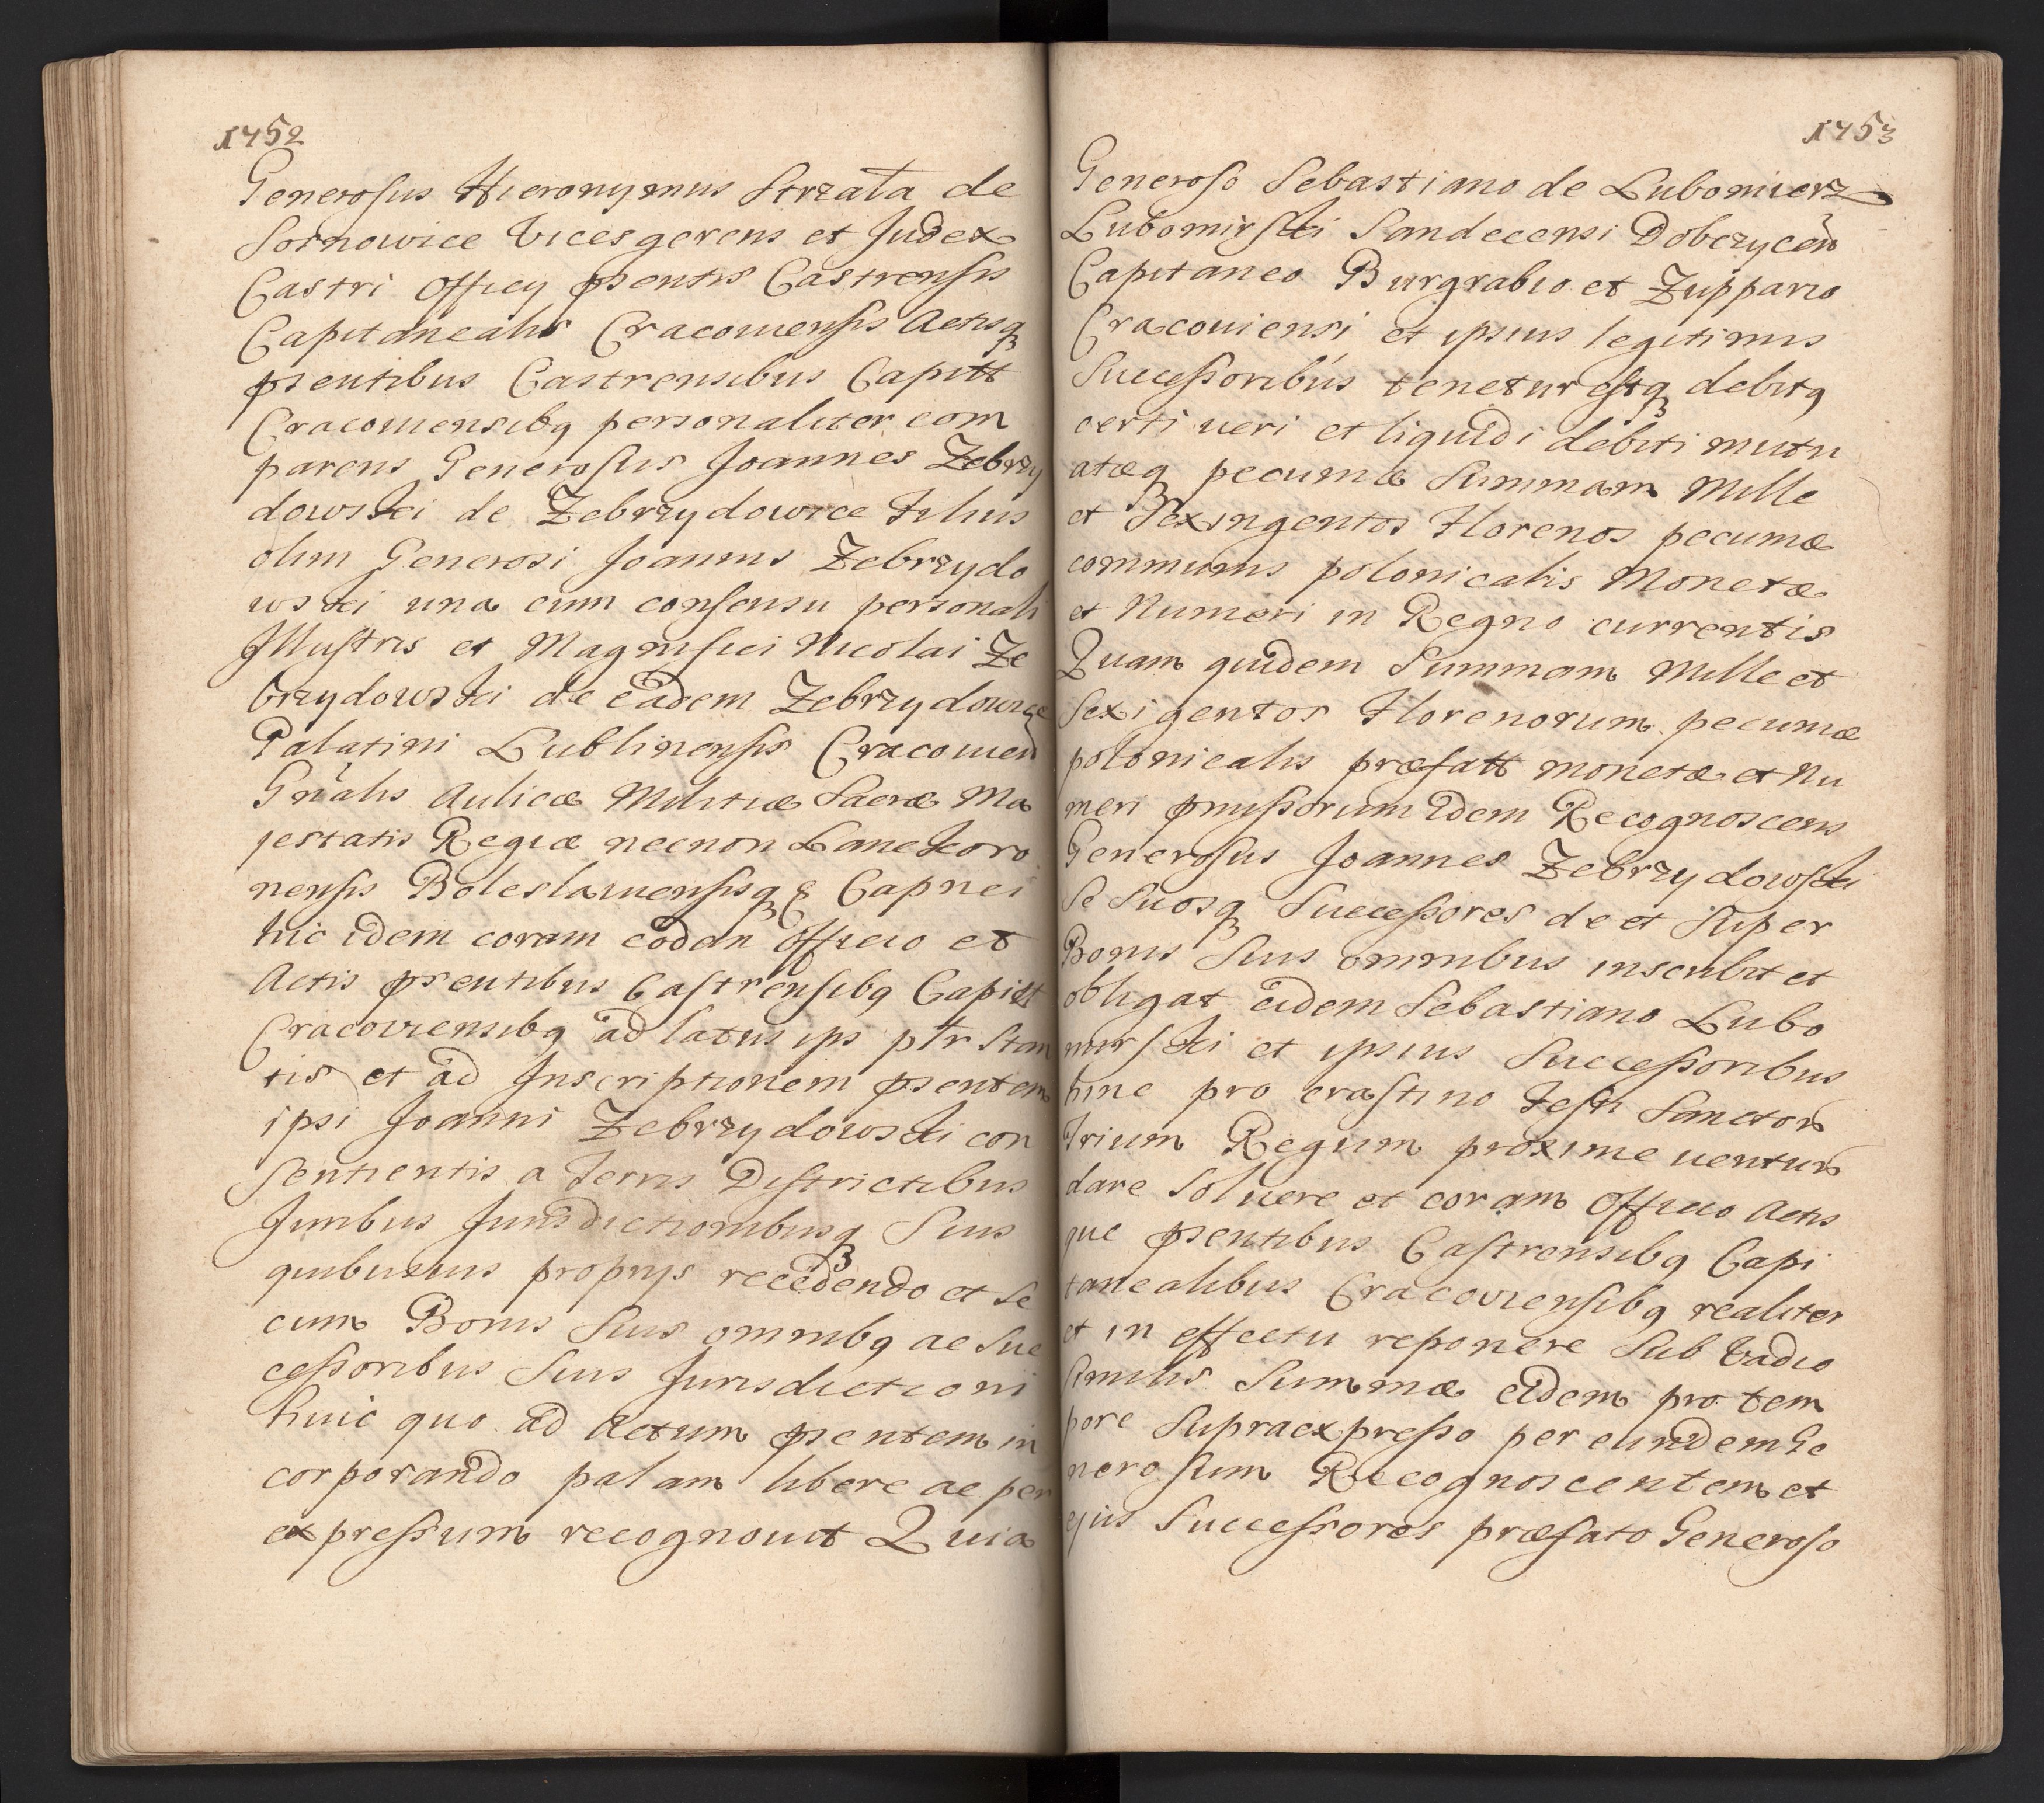 1752
Generosus Hieronymus Strzała de
Sosnowice Vicesgerens et Judex
Castri Officy pſentis Castrensis
Capitanealis Cracoviensis Actisq
pſentibus Castrensibus Capitt
Cracoviensibq personaliter com
parens Generosus Joannes Zebrzy
dowski de Zebrzydowice Filius
olim Generosi Joannis Zebrzydo
wski una cum consensu personali
Illustris et Magnifici Nicolai Ze
brzydowski de eadem Zebrzydowice
Palatini Lublinensis Cracovien
Gnalis Aulicæ Militiæ Sacræ Ma
jestatis Regiæ necnon Lanckoro
nensis Boleslaviensisq & Capnei
hic idem coram eodem Officio et
Actis pſentibus Castrensibq Capitt
Cracoviensibq ad latus ips ptr stan
tis et ad Inscriptionem pſentem
ipsi Joanni Zebrzydowski con
sentientis a Terris Districtibus
Juribus Jurisdictionibusq Suis
quibusvis proprys recedendo et se
cum Bonis Suis omnibq ac Suc
cessoribus Suis Jurisdictioni
huic quo ad Actum pſentem in
corporando palam libere ac per
expressum recognovit Quia
1753
Generoso Sebastiano de Lubomierz
Lubomirski Sandecensi Dobczycen
Capitaneo Burgrabio et Zuppario
Cracoviensi et ipsius legitimis
Successoribus tenetur estq debitq
certi veri et liquidi debiti mutu
atæq pecuniæ Summam Mille
et Sexingentos Florenos pecuniæ
communis polonicalis Monetæ
et Numeri in Regno currentis
Quam quidem Summam Mille et
Sexigentos Florenorum pecuniæ
polonicalis præfatt monetæ et Nu
meri pmissorum idem Recognoscens
Generosus Joannes Zebrzydowski
Se Suosq Successores de et Super
Bonis Suis omnibus inscribit et
obligat eidem Sebastiano Lubo
mirski et ipsius Successoribus
hinc pro crastino Festi Sanctor
Trium Regum proxime ventur
dare Solvere et coram Officio Actis
que pſentibus Castrensibq Capi
tanealibus Cracoviensibq realiter
et in effectu reponere Sub Vadio
Similis Summæ eidem pro tem
pore Supraexpresso per eundem Ge
nerosum Recognoscentem et
ejus Successores præfato Generoso